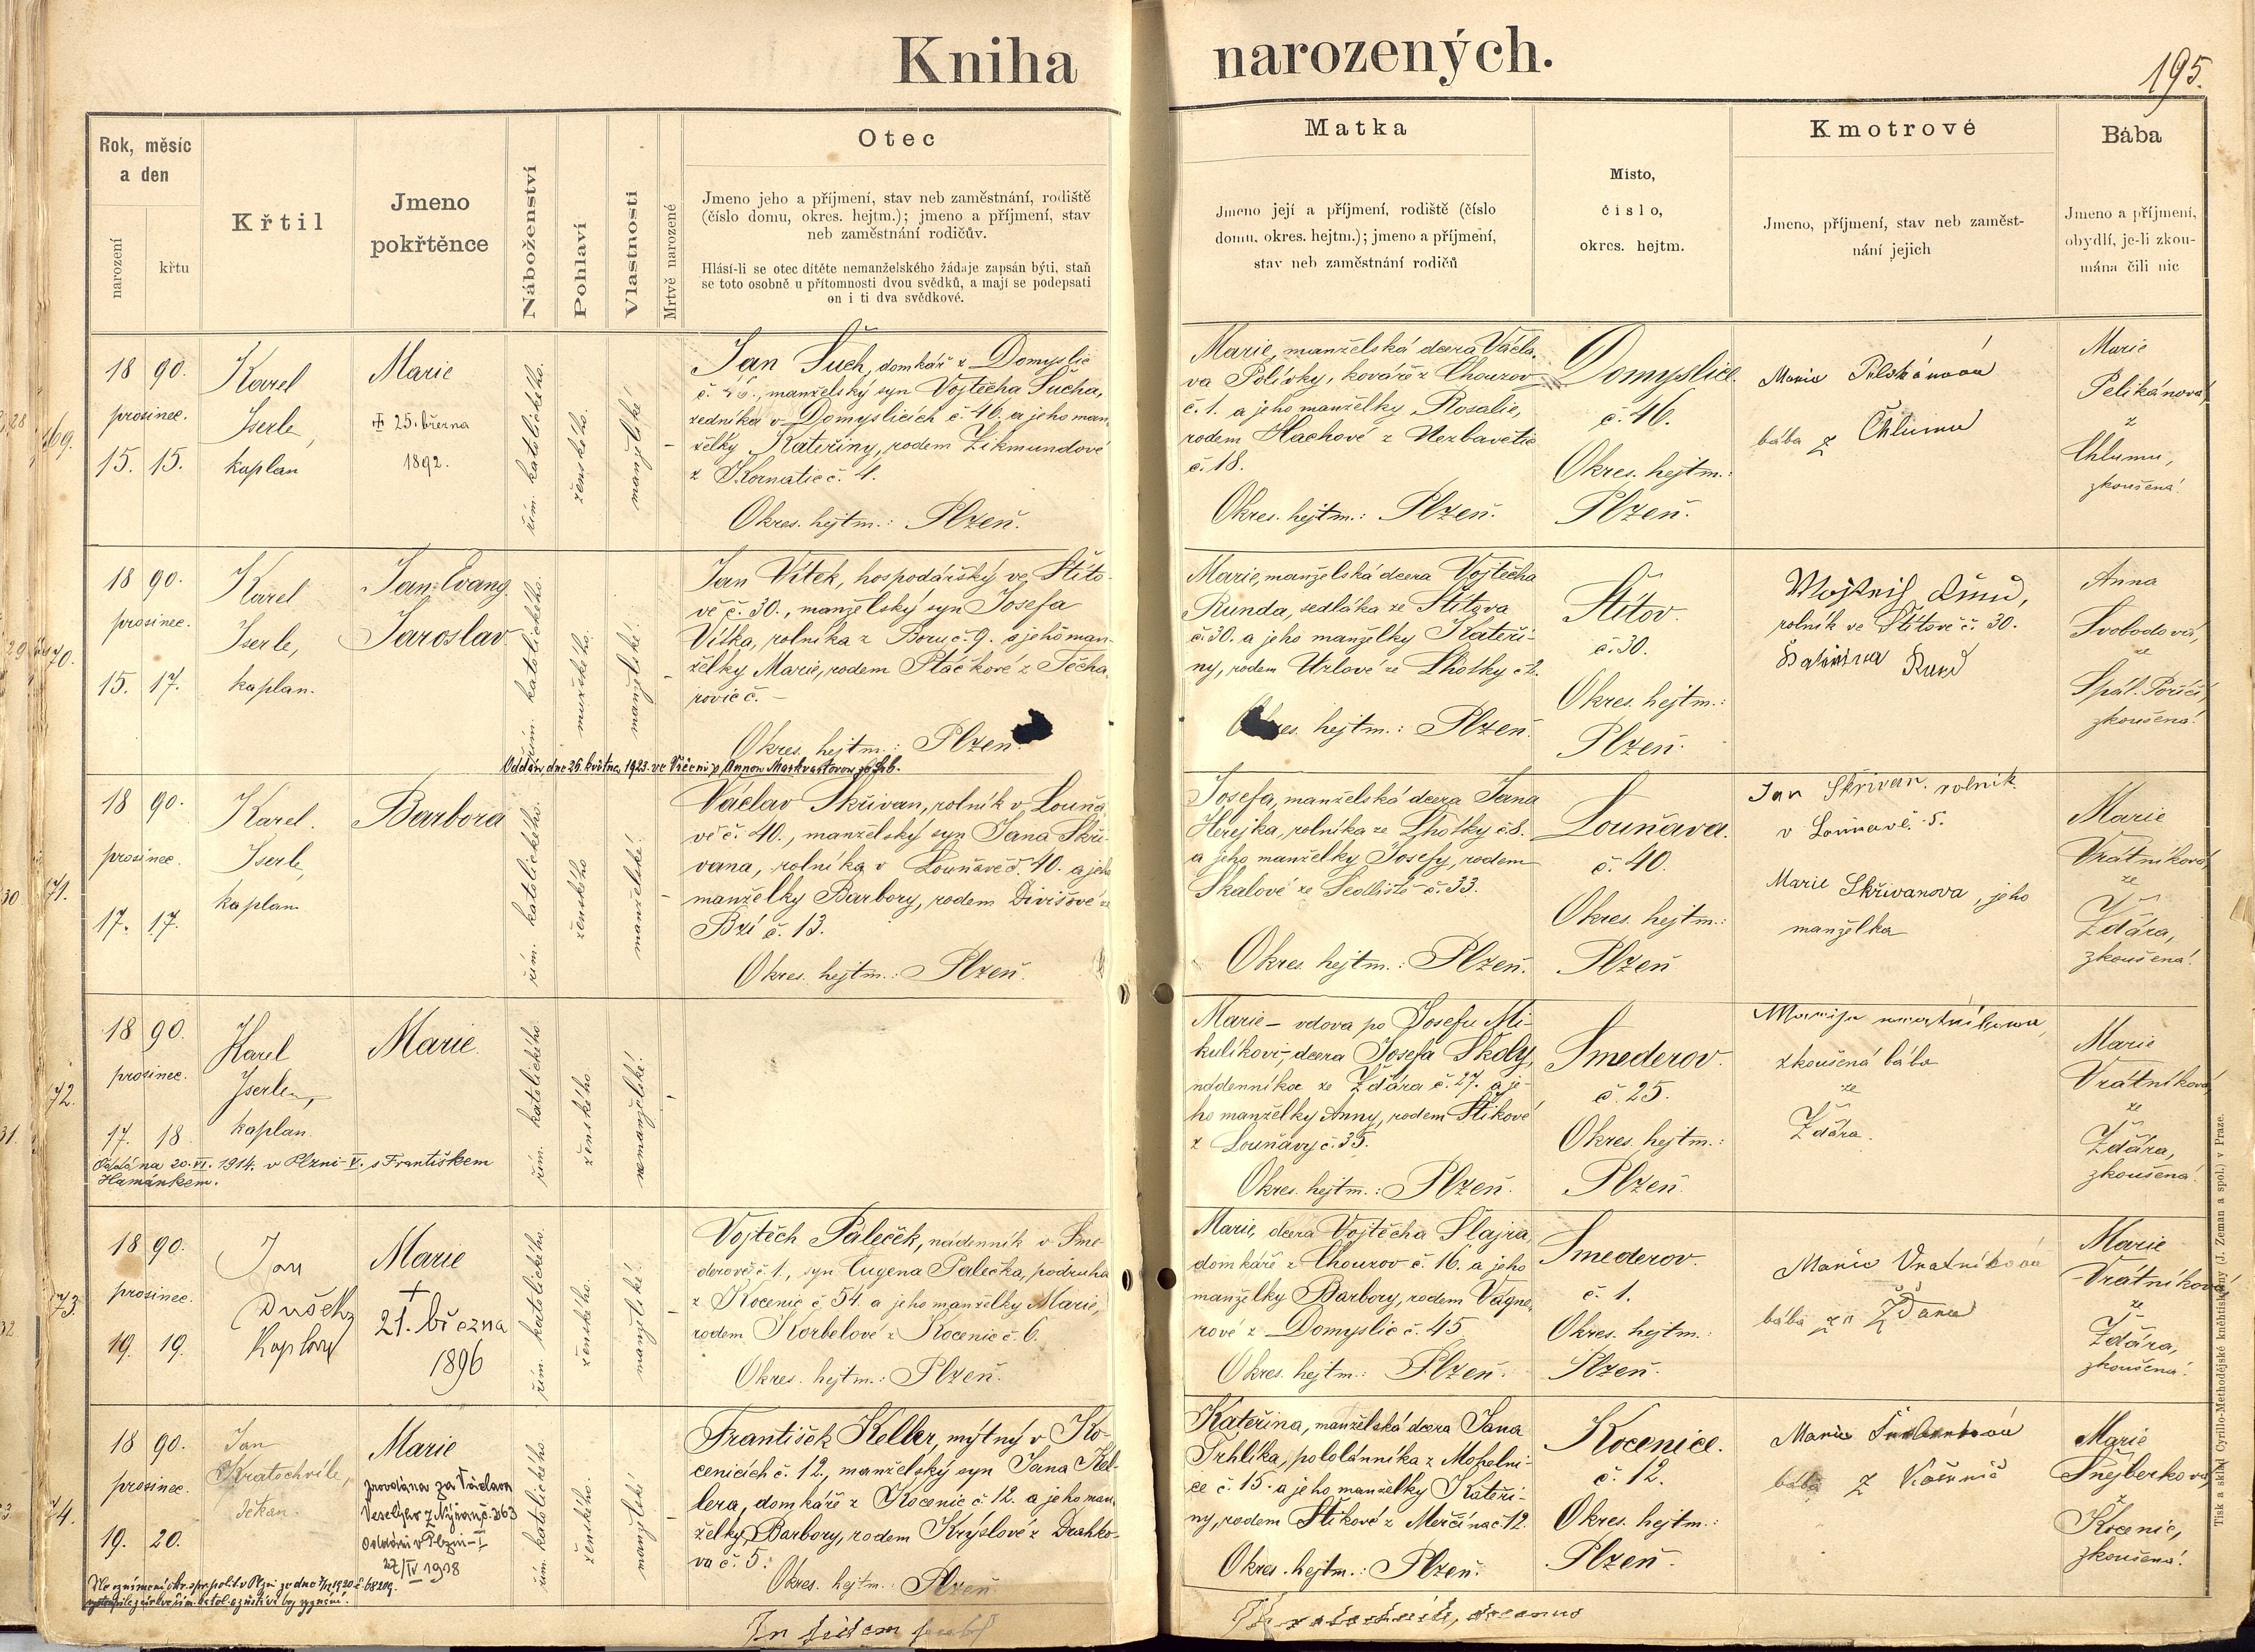 Kniha narozených.
195.
Rok, měsíc
a den
narození
křtu
Křtil
Jmeno
pokřtěnce
Náboženství
Pohlaví
Vlastnosti
Mrtvě narozené
Otec
Jmeno jeho a příjmení, stav neb zaměstnání, rodiště
(číslo domu, okres. hejtm.); jmeno a příjmení, stav
neb zaměstnání rodičův.
Hlásí-li se otec dítěte nemanželského žádaje zapsán býti, staň
se toto osobně u přítomnosti dvou svědků, a mají se podepsati
on i ti dva svědkové.
Matka
Jmeno její a příjmení, rodiště (číslo
domu, okres. hejtm.); jmeno a příjmení,
stav neb zaměstnání rodičů
Místo,
číslo,
okres. hejtm.
Kmotrové
Jmeno, příjmení, stav neb zaměst-
nání jejich
Bába
Jmeno a příjmení,
obydlí, je-li zkou-
mána čili nic
69.
18 90.
prosinec.
15. 15.
Karel
Iserle,
kaplan
Marie
25. března
1892.
řím. katolického.
ženského.
manželské!
Jan Šuch, domkář z Domyslic
č. 46., manželský syn Vojtěcha Šucha,
zedníka v Domyslicích č. 46. a jeho man-
želky Kateřiny, rodem Zikmundové
z Kornatic č. 4.
Okres. hejtm.: Plzeň.
Marie, manželská dcera Václa-
va Polívky, kováře z Chouzov
č. 1. a jeho manželky Rosalie,
rodem Hachové z Nezbavětic
č. 18.
Okres. hejtm.: Plzeň.
Domyslice.
č. 46.
Okres. hejtm.:
Plzeň.
Marie Pelikánová
bába z Chlumu
Marie
Pelikánová,
z
Chlumu,
zkoušená!
70.
18 90.
prosinec.
15. 17.
Karel
Iserle,
kaplan.
Jan Evang.
Jaroslav.
řím. katolického.
mužského.
manželské!
Jan Vítek, hospodářský ve Štíto-
vě č. 30., manželský syn Josefa
Vítka, rolníka z Boru č. 9. a jeho man-
želky Marie, rodem Ptáčkové z Těcha-
rovic č. –
Okres. hejtm.: Plzeň.
Oddán dne 26. května 1923. ve Vícení s Annou Markvartovou
Marie, manželská dcera Vojtěcha
Runda, sedláka ze Štítova
č. 30. a jeho manželky Kateři-
ny, rodem Uzlové ze Lhotky č. 2.
Okres. hejtm.: Plzeň.
Štítov.
č. 30.
Okres. hejtm.:
Plzeň.
rolník ve Štítově č. 30.
Anna
Svobodová,
ze
Spál. Poříčí,
zkoušená!
71.
18 90.
prosinec.
17. 17.
Karel.
Iserle,
kaplan
Barbora
řím. katolického.
ženského
manželské!
Václav Skřivan, rolník v Louňa-
vě č. 40., manželský syn Jana Skři-
vana, rolníka v Louňavě č. 40. a jeho
manželky Barbory, rodem Divišové ze
Bzí č. 13.
Okres. hejtm.: Plzeň.
Josefa, manželská dcera Jana
Herejka, rolníka ze Lhotky č. 8.
a jeho manželky Josefy, rodem
Skalové ze Sedliště č. 33.
Okres. hejtm.: Plzeň.
Louňava.
č. 40.
Okres. hejtm.:
Plzeň
Jan Skřivan. rolník.
v Louňavě. 5.
Marie Skřivanova, jeho
manželka
Marie
Vrátníková,
ze
Žďára,
zkoušená!
72.
18 90.
prosinec.
17. 18
Karel
Iserle,
kaplan.
Marie.
řím. katolického
ženského
nemanželské!
Oddána 20. VI. 1914. v Plzni-V. s Františkem
Hamánkem.
Marie – vdova po Josefu Mi-
kulíkovi, dcera Josefa Školy,
nádenníka ze Žďára č. 27. a je-
ho manželky Anny, rodem Štikové
z Louňavy č. 35.
Okres. hejtm.: Plzeň.
Smederov.
č. 25.
Okres. hejtm.:
Plzeň.
zkoušená bába
ze
Žďára.
Marie
Vrátníková,
ze
Žďára,
zkoušená!
73.
18 90.
prosinec.
19. 19.
Jan
Dušek,
kaplan
Marie
+
21. března
1896
řím. katolického.
ženského.
manželské!
Vojtěch Páleček, nádenník v Sme-
derově č. 1., syn Eugena Pálečka, podruha
z Kocenic č. 54. a jeho manželky Marie,
rodem Korbelové z Kocenic č. 6.
Okres. hejtm.: Plzeň.
Marie, dcera Vojtěcha Šlajra,
domkáře z Chouzov č. 16. a jeho
manželky Barbory, rodem Vágne-
rové z Domyslic č. 45
Okres. hejtm.: Plzeň.
Smederov.
č. 1.
Okres. hejtm.:
Plzeň.
Marie Vratníková
bába ze Žďara
Marie
Vrátníková,
ze
Žďára,
zkoušená!
74.
18 90.
prosinec.
19. 20.
Jan
Kratochvíle,
děkan.
Marie
provdána za Václava
z Nýřan č. 363
Oddáni v Plzni-I
27/IV 1918
řím. katolického
ženského.
manželské
František Keller, mýtný v Ko-
cenicích č. 12., manželský syn Jana Kel-
lera, domkáře z Kocenic č. 12. a jeho man-
želky Barbory, rodem Krýslové z Drahko-
va č. 5.
Okres. hejtm.: Plzeň.
Kateřina, manželská dcera Jana
Trhlíka, pololánníka z Mohelni-
ce č. 15. a jeho manželky Kateři-
ny, rodem Štikové z Merčína č. 12.
Okres. hejtm.: Plzeň.
Kocenice.
č. 12.
Okres. hejtm.:
Plzeň.
bába z
Marie
Šnejberková,
z
Kocenic,
zkoušená!
Tisk a sklad Cyrillo-Methodějské kněhtiskárny (J. Zeman a spol.) v Praze.